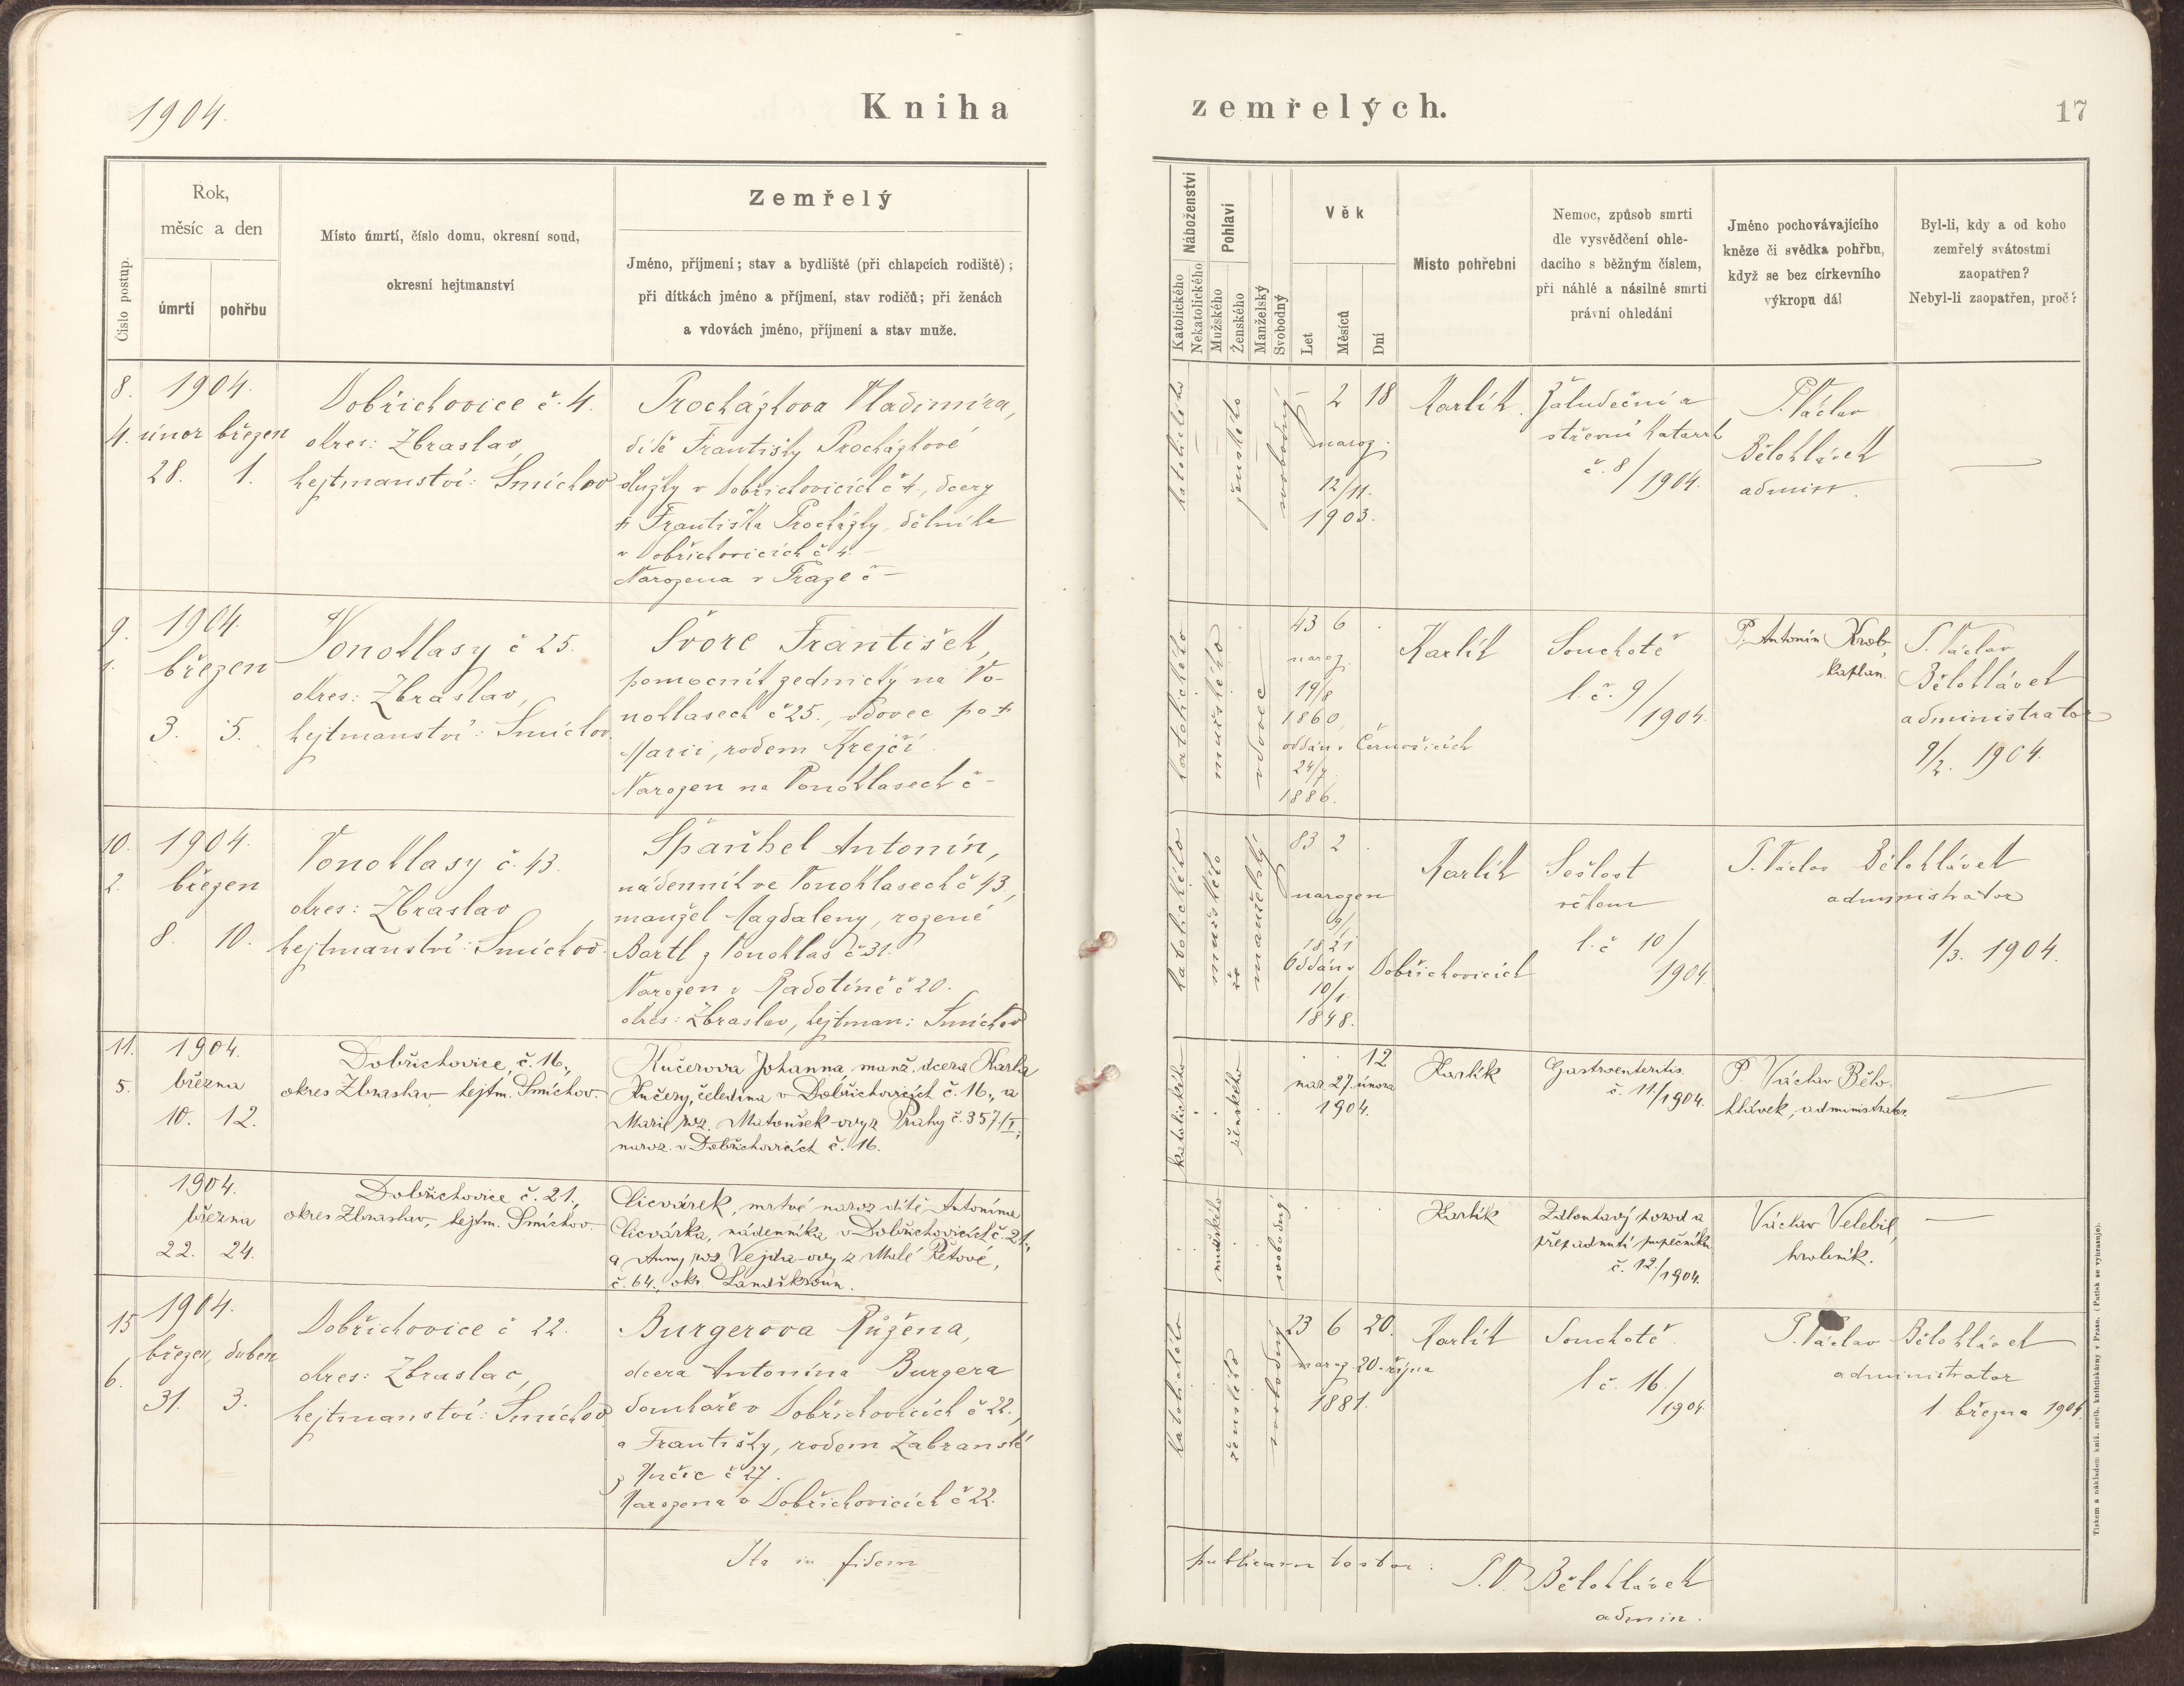 1904.
Kniha zemřelých.
17
Číslo postup.
Rok,
měsíc a den
úmrtí
pohřbu
Místo úmrtí, číslo domu, okresní soud,
okresní hejtmanství
Zemřelý
Jméno, příjmení; stav a bydliště (při chlapcích rodiště);
při dítkách jméno a příjmení, stav rodičů; při ženách
a vdovách jméno, příjmení a stav muže.
Náboženství
Katolického
Nekatolického
Pohlaví
Mužského
Ženského
Manželský
Svobodný
Věk
Let
Měsíců
Dní
Místo pohřební
Nemoc, způsob smrti
dle vysvědčení ohle-
dacího s běžným číslem,
při náhlé a násilné smrti
právní ohledání
Jméno pochovávajícího
kněze či svědka pohřbu,
když se bez církevního
výkropu dál
Byl-li, kdy a od koho
zemřelý svátostmi
zaopatřen?
Nebyl-li zaopatřen, proč?
8.
4.
1904.
únor březen
28. 1.
Dobřichovice č. 4.
okres: Zbraslav,
hejtmanství: Smíchov
Procházkova Vladimíra,
dítě Františky Procházkové
služky v Dobřichovicích č 4., dcery
† Františka Procházky, dělníka
v Dobřichovicích č 4. –
Narozena v Praze č –
katolického
ženského
svobodný
– 2 18
naroz.
12/11.
1903.
Karlík.
Žaludeční a
střevní katarrh
č. 8/1904.
P. Václav
Bělohlávek
admin.
—
9.
1.
1904.
březen
3. 5.
Vonoklasy č 25.
okres: Zbraslav,
hejtmanství: Smíchov.
Švorc František,
pomocník zednický na Vo-
noklasech č 25., vdovec po †
Marii, rodem Krejčí.
Narozen na Vonoklasech č –
katolického
mužského
vdovec
43 6 .
naroz.
19/8
1860
oddán v Černošicích
24/7.
1886.
Karlík
Souchotě
l. č. 9/1904.
P. Antonín Krob,
kaplan.
P. Václav
Bělohlávek
administrator
9/2. 1904.
10.
2.
1904.
březen
8. 10.
Vonoklasy č. 43.
okres: Zbraslav
hejtmanství: Smíchov.
Španhel Antonín,
nádenník ve Vonoklasech č 43,
manžel Magdaleny, rozené
Bartl z Vonoklas č 31.
Narozen v Radotíně č 20.
okres: Zbraslav, hejtman: Smíchov
katolického
mužského
manželský
83 2 .
narozen
9/1
1821
Oddán v Dobřichovicích
10/1.
1848.
Karlík
Sešlost
věkem
l. č 10/
1904.
P. Václav Bělohlávek
administrator
1/3. 1904.
11.
5.
1904.
března
10. 12.
Dobřichovice, č. 16.,
okres Zbraslav hejtm. Smíchov.
Kučerova Johanna, manž. dcera Karla
Kučery, čeledína v Dobřichovicích č. 16., a
Marie roz. Matoušek-ovy z Prahy č. 357/I;
naroz. v Dobřichovicích č. 16.
katolického
ženského
. . 12
nar. 27. února
1904.
Karlík
Gastroenteritis.
č. 11/1904.
P. Václav Bělo-
hlávek, administrator.
—
1904.
března
22. 24.
Dobřichovice č. 21.,
okres Zbraslav, hejtm. Smíchov.
Licvárek, mrtvě naroz. dítě Antonína
Licvárka, nádenníka, v Dobřichovicích č. 21.,
a Anny roz. Vejda-ovy z Malé Řetové,
č. 64., okr. Lanškroun.
mužského
svobodný
Karlík
Zdlouhavý porod a
přepadnutí pupečníku
č. 12/1904.
Václav Velebil,
hrobník.
—
15
6.
1904.
březen, duben
31. 3.
Dobřichovice č 22.
okres: Zbraslav,
hejtmanství: Smíchov.
Burgerova Růžena,
dcera Antonína Burgera
domkáře v Dobřichovicích č 22.,
a Františky, rodem Zabranské
z Kučic č 27.
Narozena v Dobřichovicích č 22.
katolického
ženského
svobodný
23 6 20.
naroz. 20. října
1881.
Karlík
Souchotě.
l č. 16./1904
P. Václav Bělohlávek
administrator
1. března 1904.
Ita in fidem
publicam testor:
P. V. Bělohlávek
admin.
Tiskem a nákladem kníž. arcib. knihtiskárny v Praze. (Patisk se vyhrazuje).